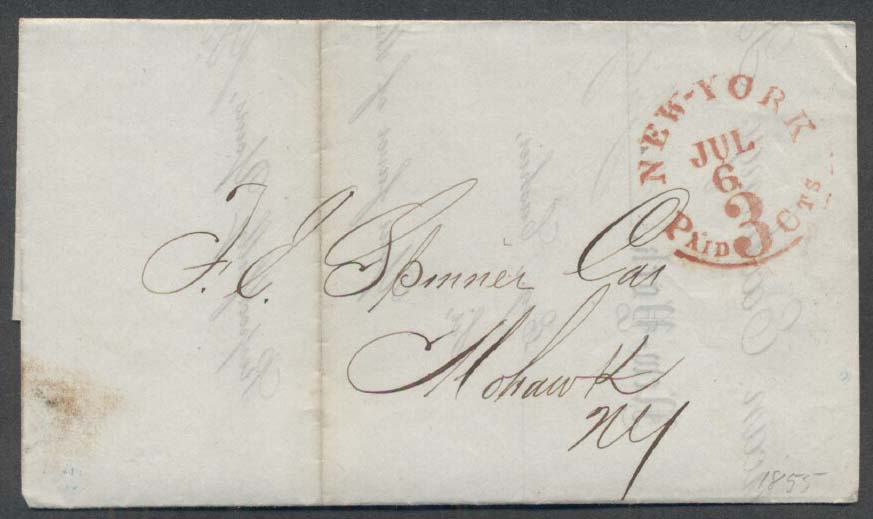 NEW-YORK
JUL
6
PAID 3 CTS
F. E. Spinner Cas
Mohawk
NY
1855